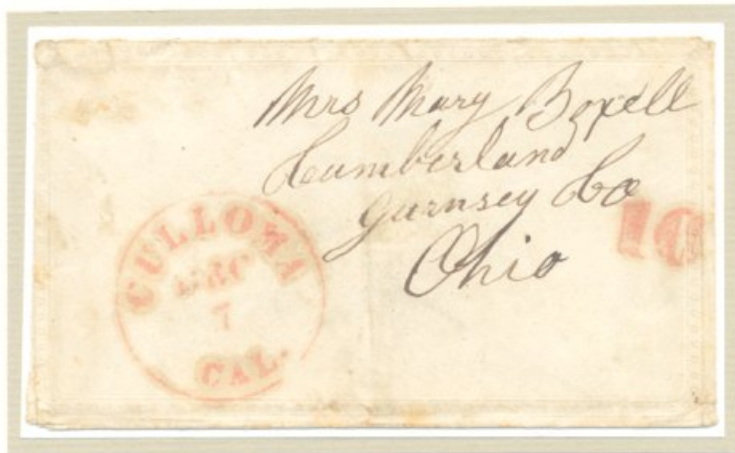 Mrs Mary Boxell
Cumberland
Gurnsey Co
Ohio
10
CULLOMA
DEC
7
CAL.